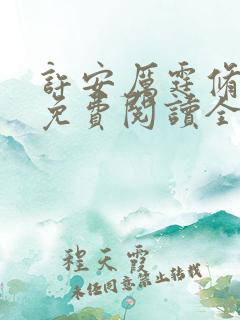 許安厲霆脩
免費閱讀全
程天霞
未經同意禁止轉載